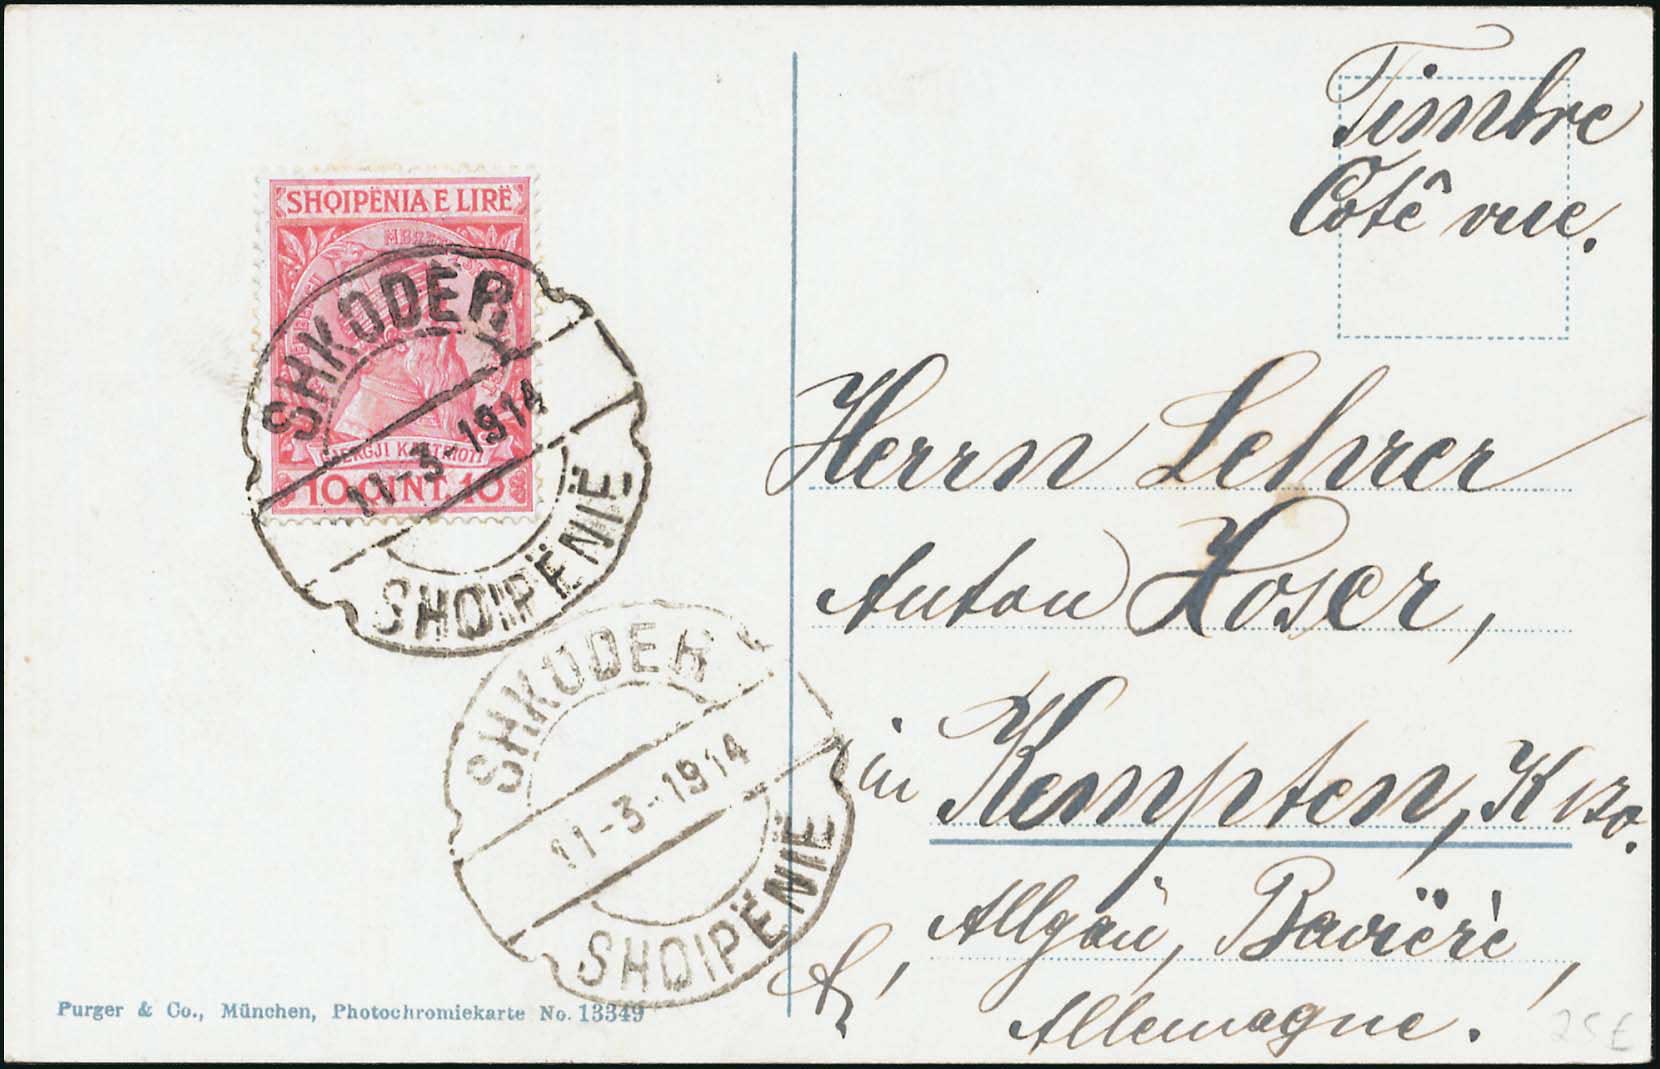 Timbre
Côté vue.
SHQIPËNIA E LIRË
GJERGJ KASTRIOTI
10 QINT. 10
SHKODËR
11-3-1914
SHQIPËNIË
SHKODËR
11-3-1914
SHQIPËNIË
Herrn Lehrer
Anton Hoser,
in Kempten,
Allgäu, Bavière,
Allemagne.
Purger & Co., München, Photochromiekarte No. 13349
25€